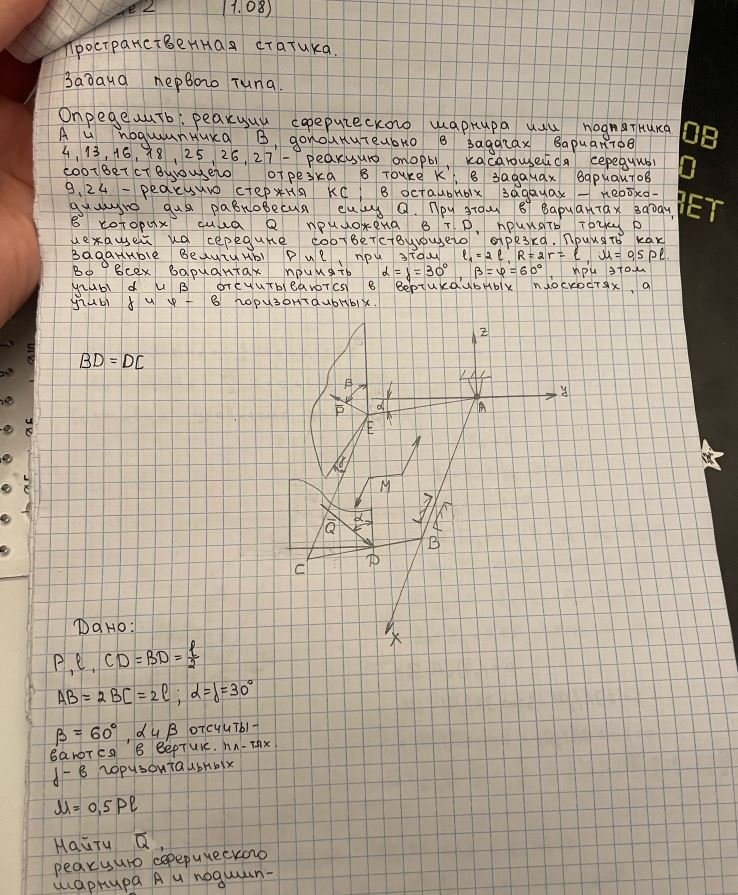 2 (1.08)
Пространственная статика.
Задача первого типа.
Определить: реакции сферического шарнира или подпятника
А и подшипника В, дополнительно в задачах вариантов
4, 13, 16, 18, 25, 26, 27 - реакцию опоры, касающейся середины
соответствующего отрезка в точке К, в задачах вариантов
9, 24 - реакцию стержня КС, в остальных задачах - необхо-
димую для равновесия силу Q. При этом в вариантах задач,
в которых сила Q приложена в т. D, принять точку D
лежащей на середине соответствующего отрезка. Принять как
заданные величины P и l, при этом l₁=2l, R=2r=l, M=0,5Pl.
Во всех вариантах принять α=γ=30°, β=φ=60°, при этом
углы α и β отсчитываются в вертикальных плоскостях, а
углы γ и φ - в горизонтальных.
BD = DC
z
β
α
y
P
E
A
γ
M
α
Q
B
C
D
x
Дано:
P, l, CD = BD = l/2
AB = 2BC = 2l; α=γ=30°
β = 60°, α и β отсчиты-
ваются в вертик. пл-тях.
γ - в горизонтальных
M = 0,5Pl
Найти Q,
реакцию сферического
шарнира А и подшип-
ОВ
О
ЛЕТ